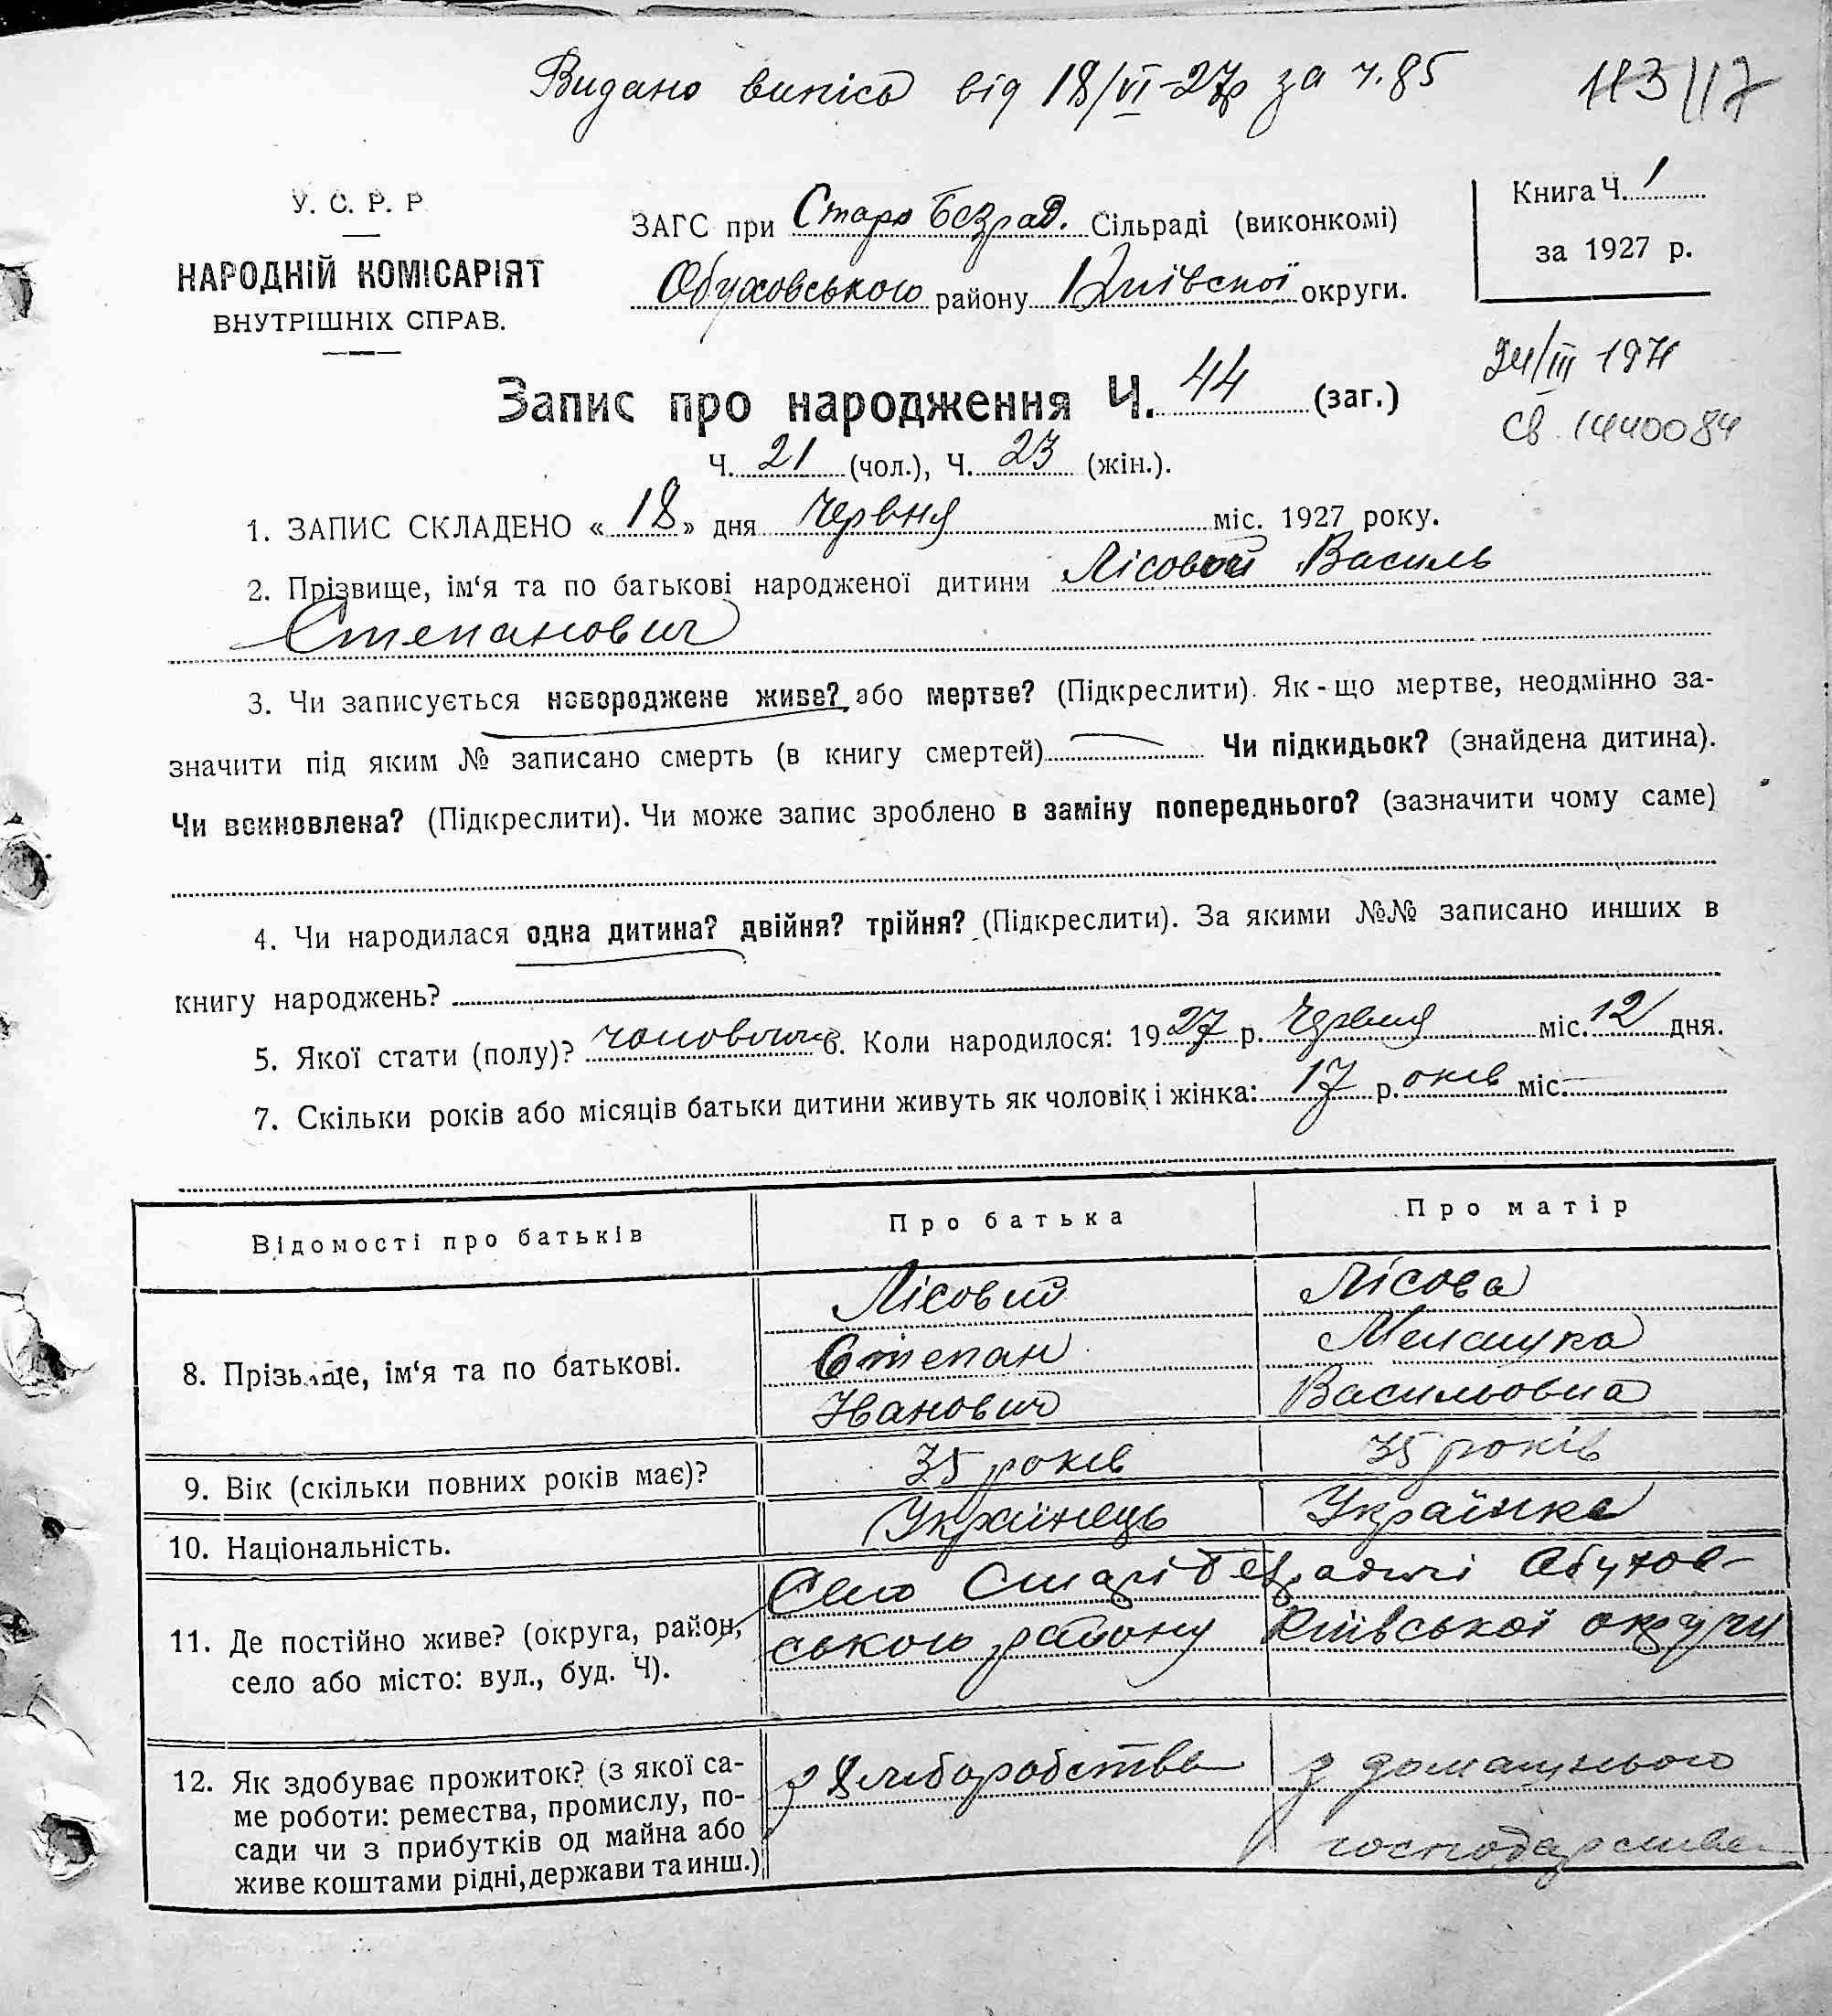 Видано випісь від 18/VI-27р за ч. 85
113/17
У. С. Р. Р
НАРОДНІЙ КОМІСАРІЯТ
ВНУТРІШНІХ СПРАВ.
ЗАГС при Старо Безрад. Сільраді (виконкомі)
Обуховського району Київської округи.
Книга Ч. 1
за 1927 р.
24/III 1971
св. 1440084
Запис про народження Ч. 44 (заг.)
Ч. 21 (чол.), Ч. 23 (жін.).
1. ЗАПИС СКЛАДЕНО « 18 » дня Червня міс. 1927 року.
2. Прізвище, ім‘я та по батькові народженої дитини Лісовой Василь
Степанович
3. Чи записується новороджене живе? або мертве? (Підкреслити). Як-що мертве, неодмінно за-
значити під яким № записано смерть (в книгу смертей) — Чи підкидьок? (знайдена дитина).
Чи всиновлена? (Підкреслити). Чи може запис зроблено в заміну попереднього? (зазначити чому саме)
4. Чи народилася одна дитина? двійня? трійня? (Підкреслити). За якими №№ записано инших в
книгу народжень?
5. Якої стати (полу)? чоловічих 6. Коли народилося: 1927 р. Червня міс. 12 дня.
7. Скільки років або місяців батьки дитини живуть як чоловік і жінка: 17 р. оків міс. —
Відомості про батьків Про батька Про матір
Лісовий Лісова
8. Прізвище, ім‘я та по батькові. Степан Мелашка
Іванович Васильовна
9. Вік (скільки повних років має)? 35 років 35 років
10. Національність. Українець Українка
Село Старі Безрадичі Обухов-
11. Де постійно живе? (округа, район, ського району Київської округи
село або місто: вул., буд. Ч).
12. Як здобуває прожиток? (з якої са- з хліборобства з домашнього
ме роботи: ремества, промислу, по-
сади чи з прибутків од майна або господарства
живе коштами рідні, держави та инш.)